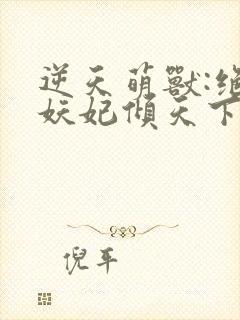 逆天萌獸:絕
妖妃傾天下
倪平